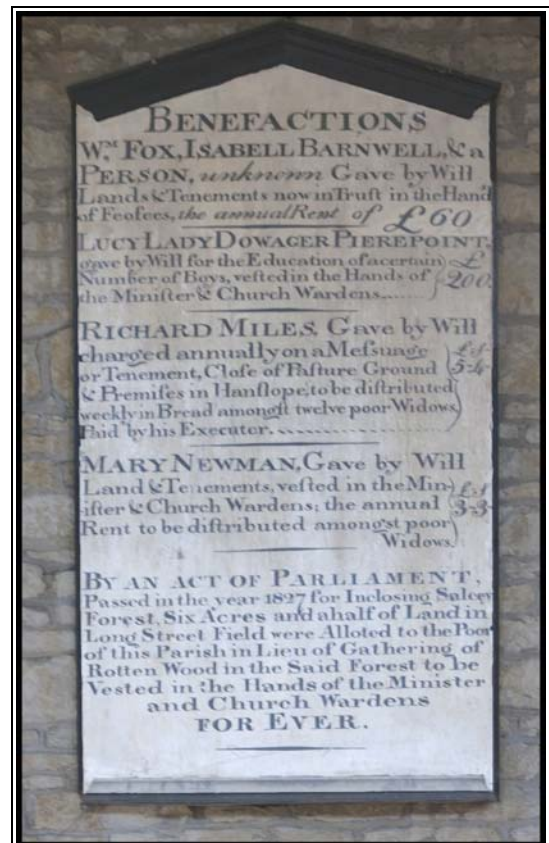 BENEFACTIONS
Wᴹ. FOX, ISABELL BARNWELL, & a
PERSON, unknown Gave by Will
Lands & Tenements now in Truſt in the Hand
of Feofees, the annual Rent of £60
LUCY LADY DOWAGER PIEREPOINT,
gave by Will for the Education of a certain £
Number of Boys, veſted in the Hands of 200.
the Miniſter & Church Wardens......
RICHARD MILES, Gave by Will
charged annually on a Meſsuage £ s
or Tenement, Cloſe of Paſture Ground 5-4
& Premiſes in Hanſlope, to be diſtributed
weekly in Bread amongſt twelve poor Widows
Paid by his Executor...................
MARY NEWMAN, Gave by Will
Land & Tenements, veſted in the Min- £ s
iſter & Church Wardens; the annual 3-3
Rent to be diſtributed amongst poor
Widows.
BY AN ACT OF PARLIAMENT,
Paſsed in the year 1827 for Incloſing Salcey
Foreſt, Six Acres and a half of Land in
Long Street Field were Alloted to the Poor
of this Pariſh in Lieu of Gathering of
Rotten Wood in the Said Foreſt to be
Vested in the Hands of the Minister
and Church Wardens
FOR EVER.